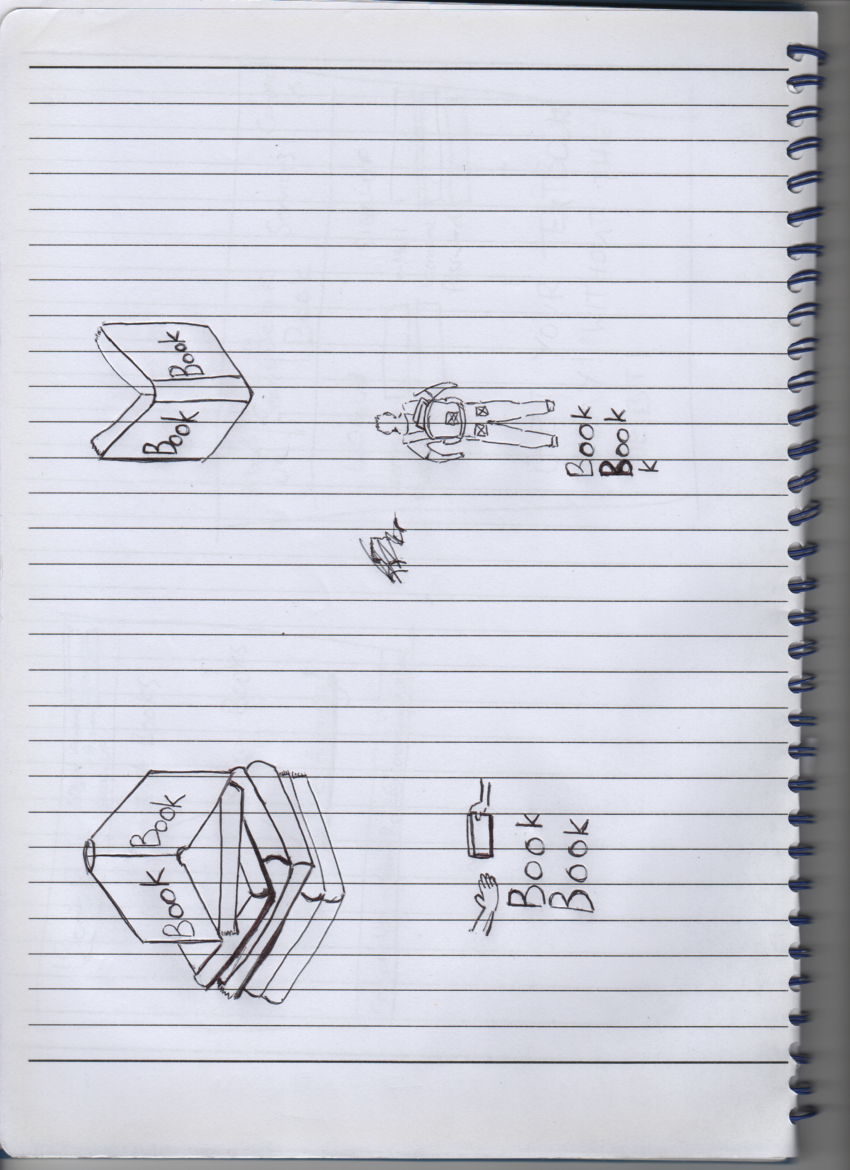 Book Book
Book Book
Book
Book
Book
Book
k